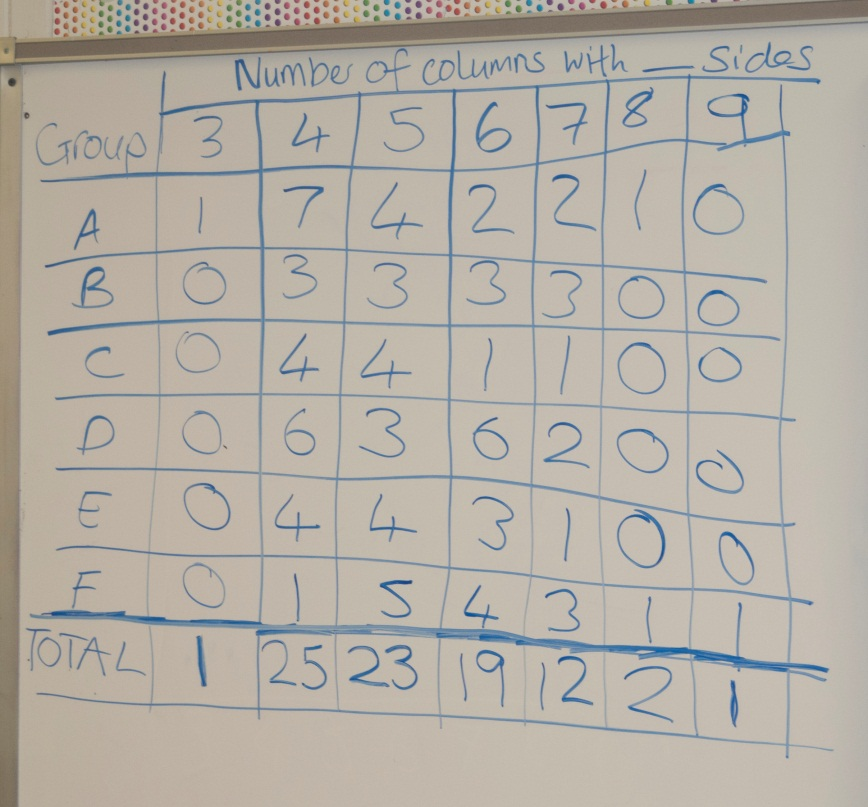 Number of columns with __ Sides
Group 3 4 5 6 7 8 9
A 1 7 4 2 2 1 0
B 0 3 3 3 3 0 0
C 0 4 4 1 1 0 0
D 0 6 3 6 2 0 0
E 0 4 4 3 1 0 0
F 0 1 5 4 3 1 1
TOTAL 1 25 23 19 12 2 1